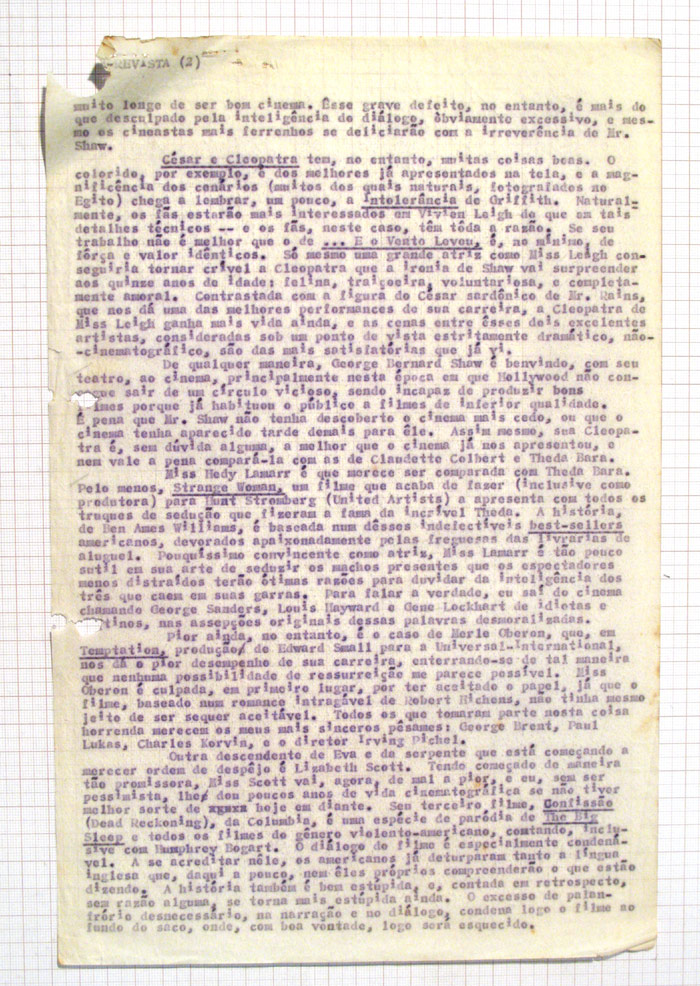 -REVISTA (2)
muito longe de ser bom cinema. Êsse grave defeito, no entanto, é mais do
que desculpado pela inteligência do diálogo, obviamente excessivo, e mes-
mo os cineastas mais ferrenhos se deliciarão com a irreverência de Mr.
Shaw.
César e Cleopatra tem, no entanto, muitas coisas boas. O
colorido, por exemplo, é dos melhores já apresentados na tela, e a mag-
nificência dos cenários (muitos dos quais naturais, fotografados no
Egito) chega a lembrar, um pouco, a Intolerância de Griffith. Natural-
mente, os fãs estarão mais interessados em Vivien Leigh do que em tais
detalhes técnicos -- e os fãs, neste caso, têm tôda a razão. Se seu
trabalho não é melhor que o de ... E o Vento Levou, é, no mínimo, de
fôrça e valor idênticos. Só mesmo uma grande atriz como Miss Leigh con-
seguiria tornar crível a Cleopatra que a ironia de Shaw vai surpreender
aos quinze anos de idade: felina, traiçoeira, voluntariosa, e completa-
mente amoral. Contrastada com a figura do César sardônico de Mr. Rains,
que nos dá uma das melhores performances de sua carreira, a Cleopatra de
Miss Leigh ganha mais vida ainda, e as cenas entre êsses dois excelentes
artistas, consideradas sob um ponto de vista estritamente dramático, não-
-cinematográfico, são das mais satisfatórias que já vi.
De qualquer maneira, George Bernard Shaw é benvindo, com seu
teatro, ao cinema, principalmente nesta época em que Hollywood não con-
gue sair de um círculo vicioso, sendo incapaz de produzir bons
filmes porque já habituou o público a filmes de inferior qualidade.
É pena que Mr. Shaw não tenha descoberto o cinema mais cedo, ou que o
cinema tenha aparecido tarde demais para êle. Assim mesmo, sua Cleopa-
tra é, sem dúvida alguma, a melhor que o cinema já nos apresentou, e
nem vale a pena compará-la com as de Claudette Colbert e Theda Bara.
Miss Hedy Lamarr é que merece ser comparada com Theda Bara.
Pelo menos, Strange Woman, um filme que acaba de fazer (inclusive como
produtora) para Hunt Stromberg (United Artists) a apresenta com todos os
truques de sedução que fizeram a fama da incrível Theda. A história,
de Ben Ames Williams, é baseada num dêsses indefectíveis best-sellers
americanos, devorados apaixonadamente pelas freguesas das livrarias de
aluguel. Pouquíssimo convincente como atriz, Miss Lamarr é tão pouco
sutil em sua arte de seduzir os machos presentes que os espectadores
menos distraídos terão ótimas razões para duvidar da inteligência dos
três que caem em suas garras. Para falar a verdade, eu saí do cinema
chamando George Sanders, Louis Hayward e Gene Lockhart de idiotas e
cretinos, nas assepções originais dessas palavras desmoralizadas.
Pior ainda, no entanto, é o caso de Merle Oberon, que, em
Temptation, produção de Edward Small para a Universal-International,
nos dá o pior desempenho de sua carreira, enterrando-se de tal maneira
que nenhuma possibilidade de ressurreição me parece possível. Miss
Oberon é culpada, em primeiro lugar, por ter aceitado o papel, já que o
filme, baseado num romance intragável de Robert Hichens, não tinha mesmo
jeito de ser sequer aceitável. Todos os que tomaram parte nesta coisa
horrenda merecem os meus mais sinceros pêsames: George Brent, Paul
Lukas, Charles Korvin, e o diretor Irving Pichel.
Outra descendente de Eva e da serpente que está começando a
merecer ordem de despêjo é Lizabeth Scott. Tendo começado de maneira
tão promissora, Miss Scott vai, agora, de mal a pior, e eu, sem ser
pessimista, lhe dou poucos anos de vida cinematográfica se não tiver
melhor sorte de xxxxx hoje em diante. Seu terceiro filme, Confissão
(Dead Reckoning), da Columbia, é uma espécie de paródia de The Big
Sleep e todos os filmes do gênero violento-americano, contando, inclu-
sive com Humphrey Bogart. O diálogo do filme é especialmente condená-
vel. A se acreditar nêle, os americanos já deturparam tanto a língua
inglesa que, daqui a pouco, nem êles próprios compreenderão o que estão
dizendo. A história também é bem estúpida, e, contada em retrospecto,
sem razão alguma, se torna mais estúpida ainda. O excesso de palan-
frório desnecessário, na narração e no diálogo, condena logo o filme ao
fundo do saco, onde, com boa vontade, logo será esquecido.